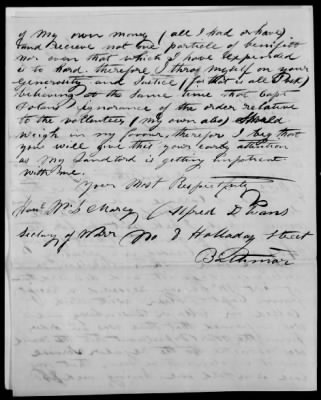 of my own money (all I had or have)
and recieve not one particle of benifitt
nor even that which I have expended
is to hard. therefore I throg myself on your
Generosity and Justice (for that is all I ask)
believing at the same time that Capt
ignorance of the order relative
to the vollenteers (my own also) should
weigh in my favour, therefore I beg that
you will give this your early attention
as my Landlord is getting impatient
with me.
Your Most Respectfuly
Hon. Wm L Marcy (Alfred D Evans
Sectary of War No 8 Halladay Street
Baltimor